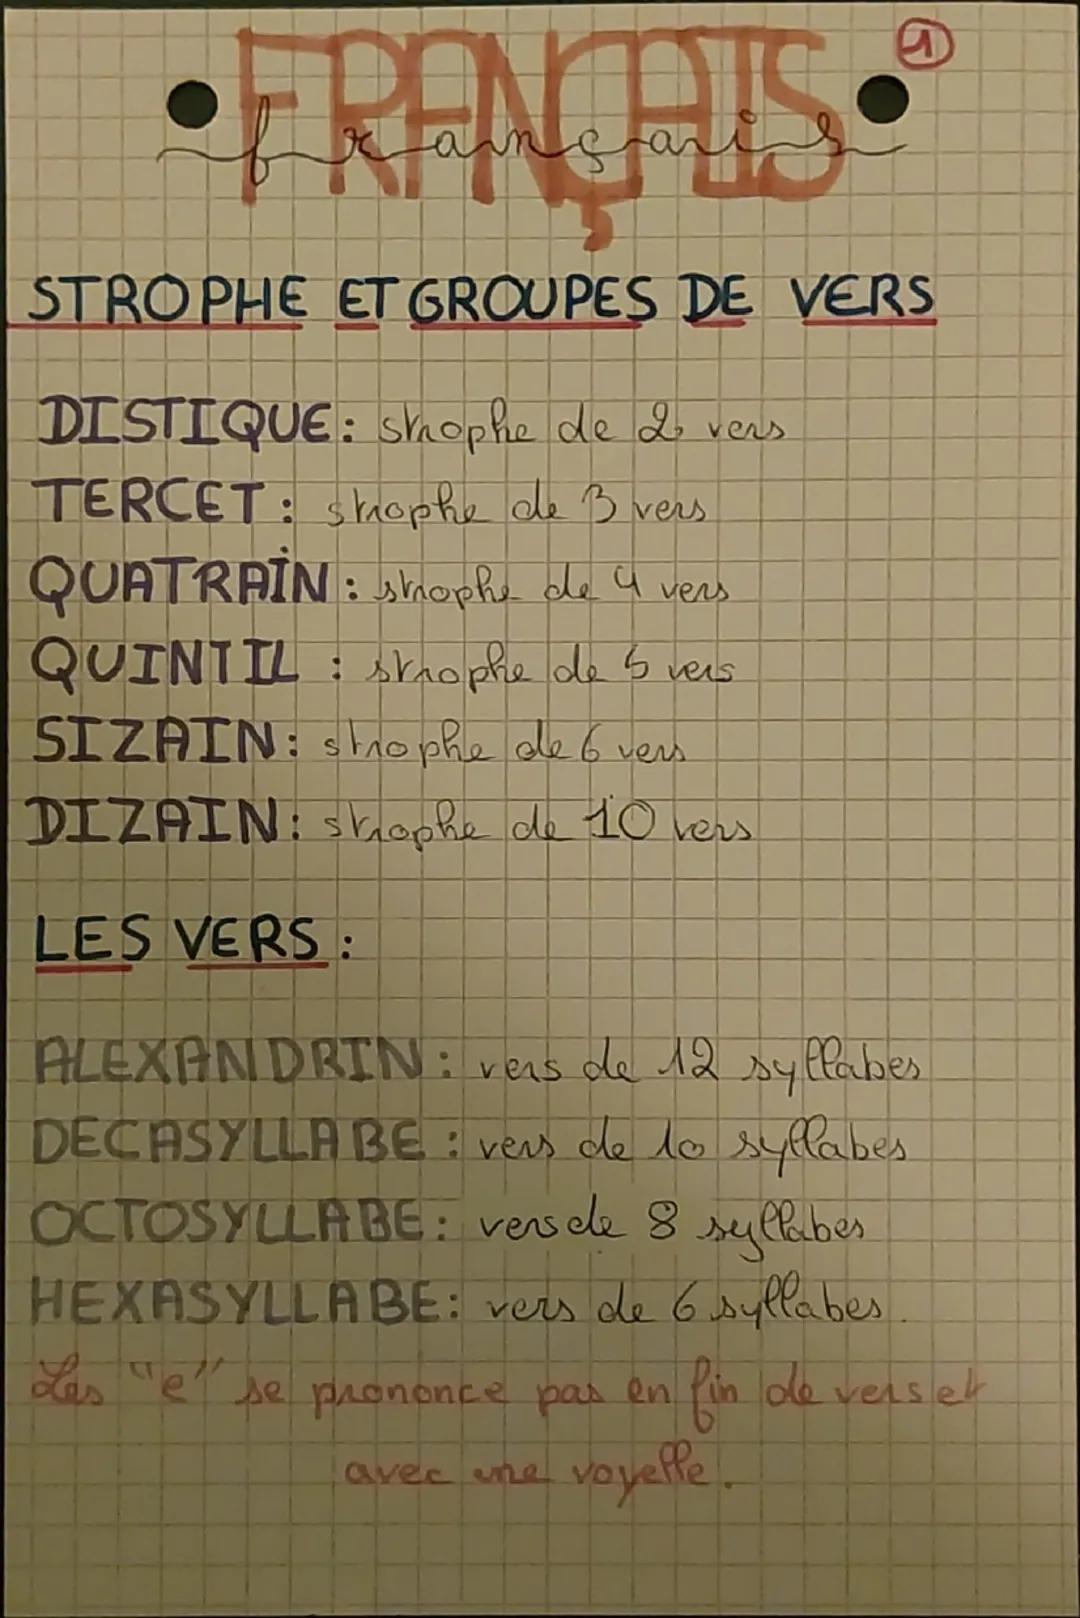 1
FRANÇAIS
français
STROPHE ET GROUPES DE VERS
DISTIQUE : strophe de 2 vers
TERCET : strophe de 3 vers
QUATRAIN : strophe de 4 vers
QUINTIL : strophe de 5 vers
SIZAIN : strophe de 6 vers
DIZAIN : strophe de 10 vers
LES VERS :
ALEXANDRIN : vers de 12 syllabes
DECASYLLABE : vers de 10 syllabes
OCTOSYLLABE : vers de 8 syllabes
HEXASYLLABE : vers de 6 syllabes.
Les "e" se prononce pas en fin de vers et
avec une voyelle.